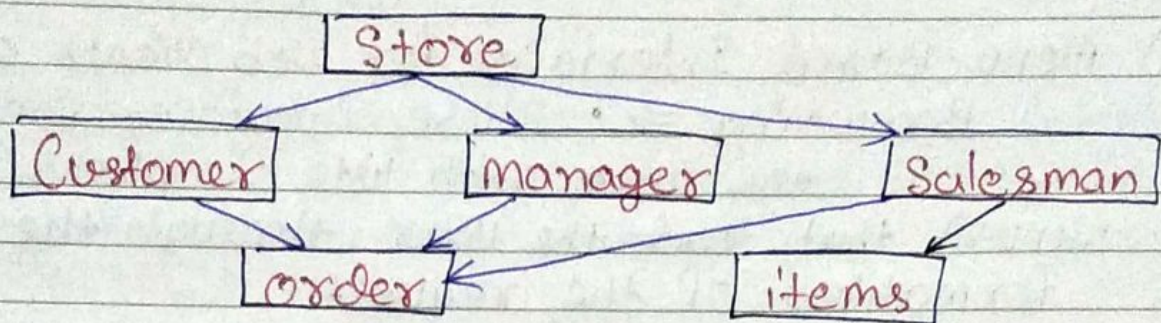 Store
Customer manager Salesman
order items